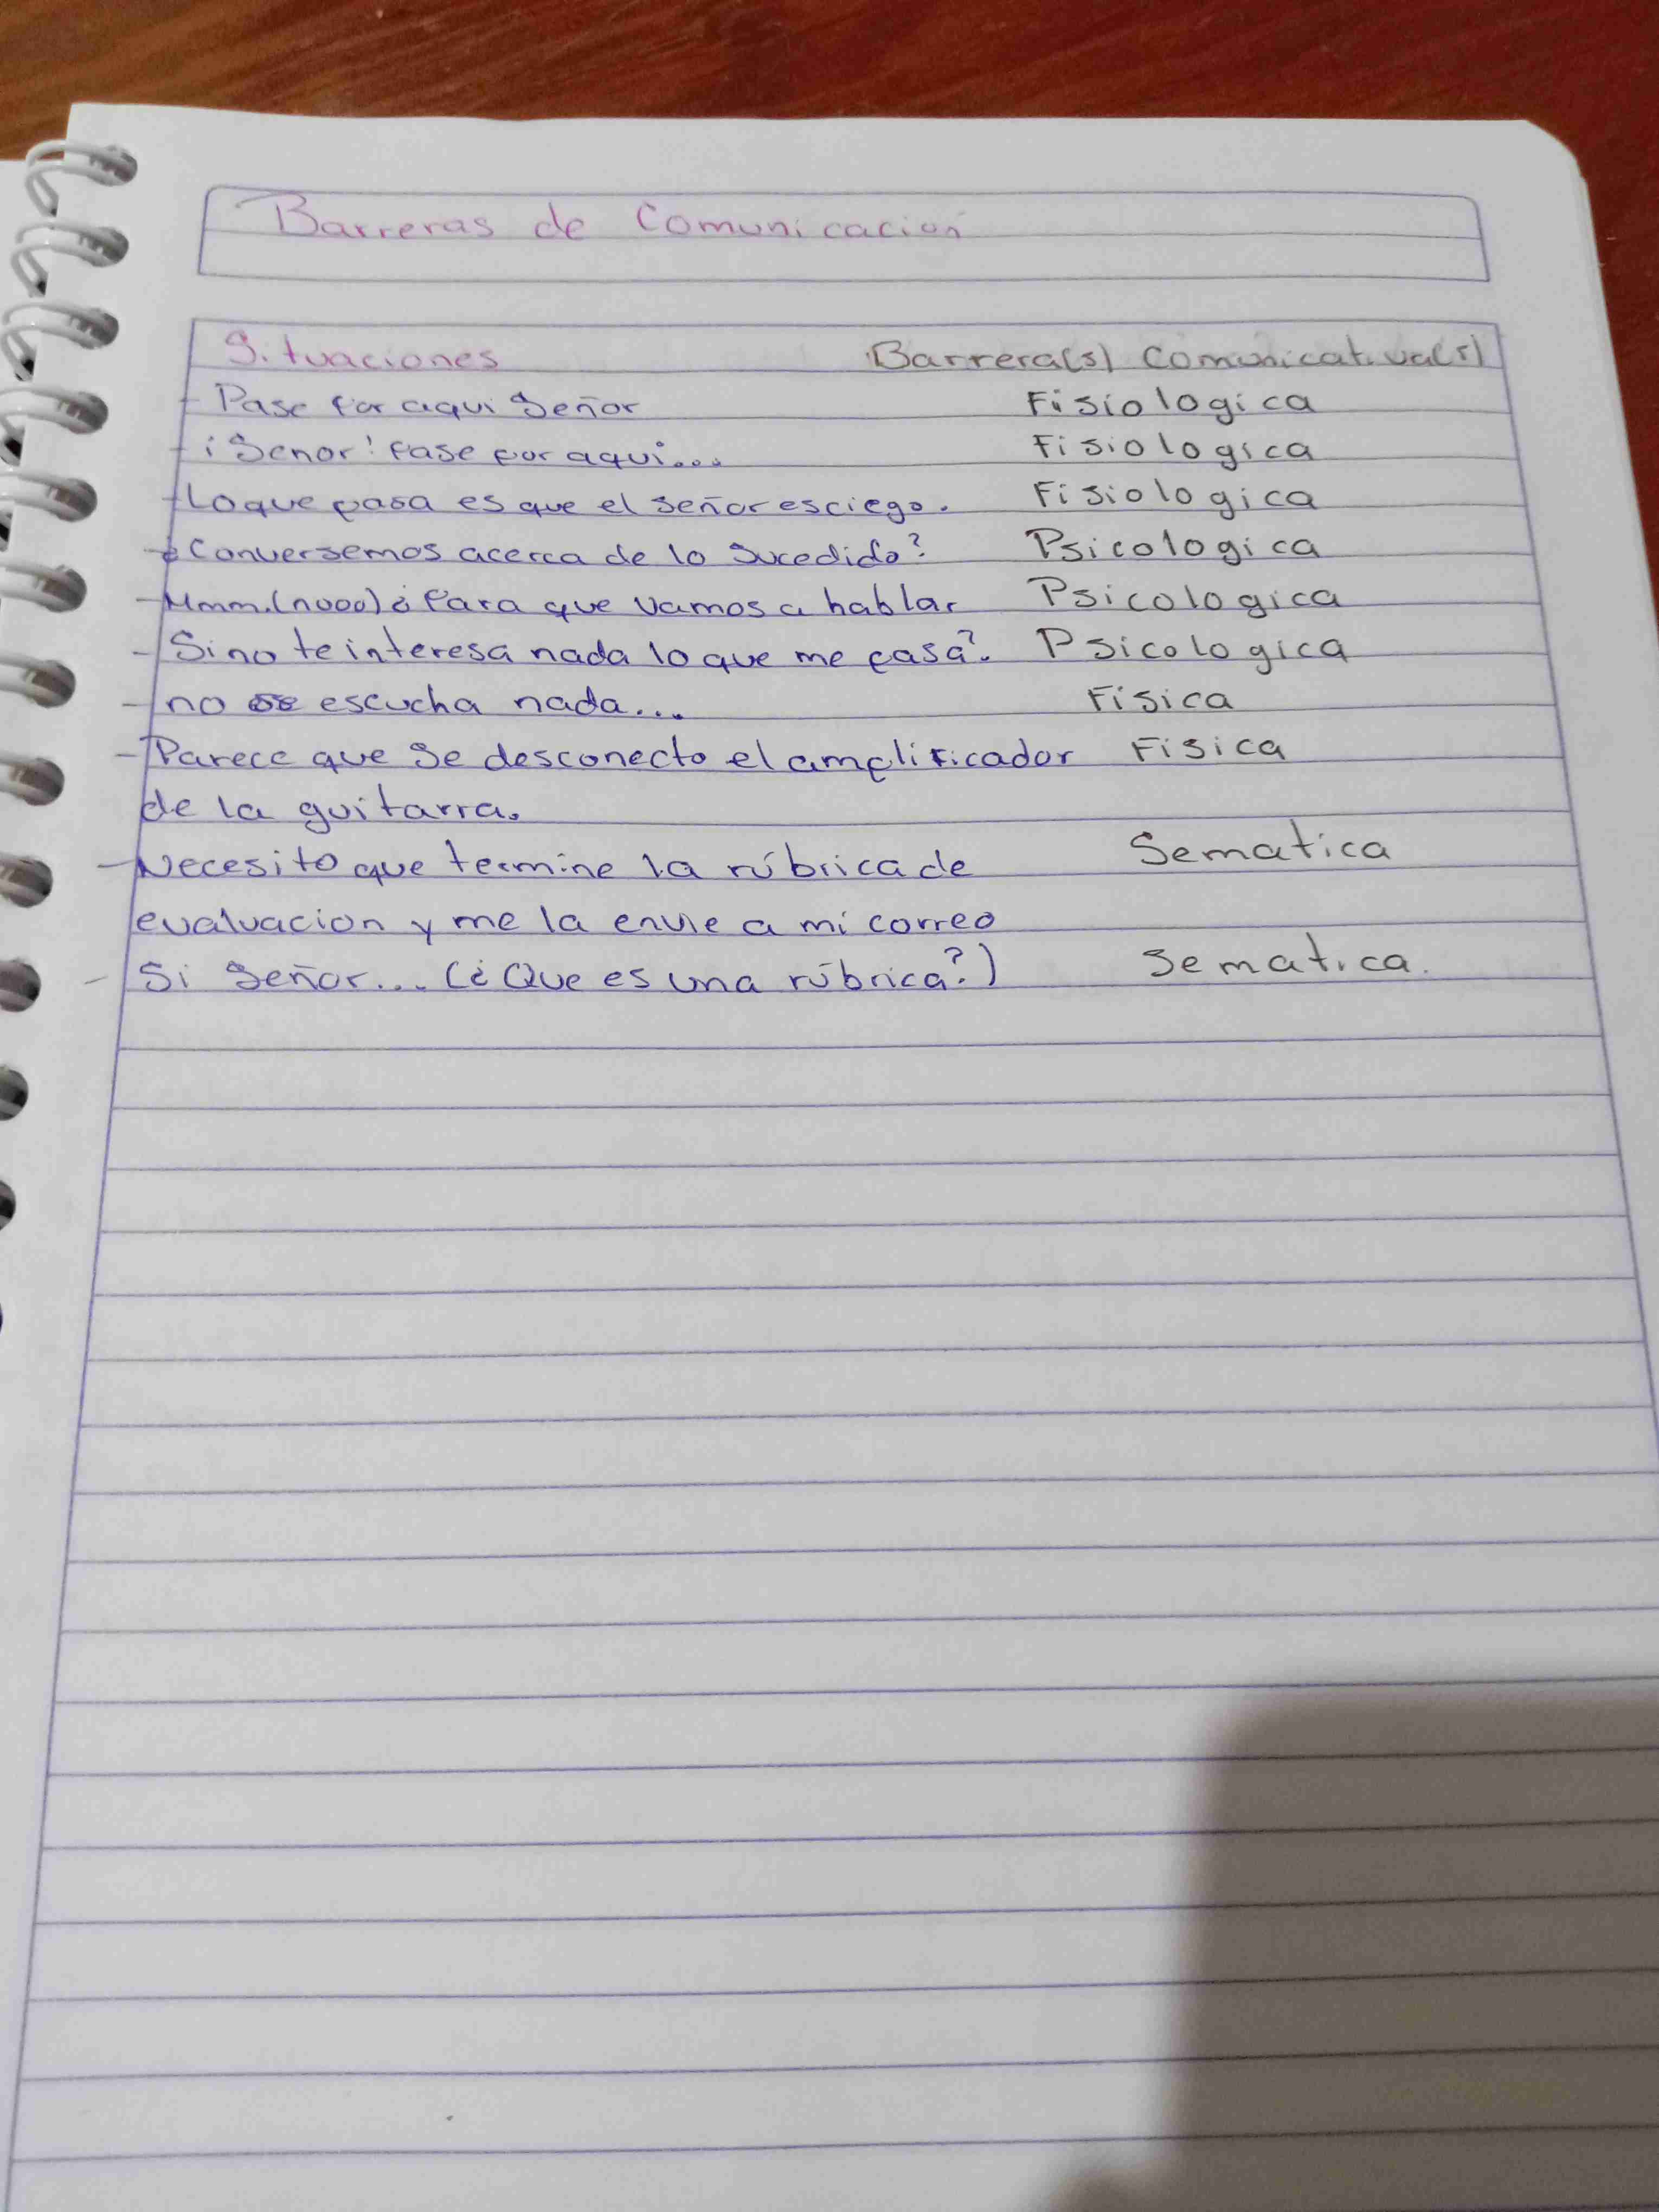 Barreras de Comunicación
Situaciones Barrera(s) Comunicativa(s)
- Pase por aqui Señor Fisiologica
- ¡Senor! Pase por aqui... Fisiologica
- Lo que pasa es que el señor es ciego. Fisiologica
- ¿Conversemos acerca de lo Sucedido? Psicologica
- Mmm.(nooo) ¿Para que vamos a hablar Psicologica
- Si no te interesa nada lo que me pasa?. Psicologica
- no se escucha nada... Física
- Parece que Se desconecto el amplificador Fisica
de la guitarra.
- Necesito que termine la rúbrica de Sematica
evaluacion y me la envie a mi correo
- Si Señor... (¿Que es una rúbrica?) Sematica.